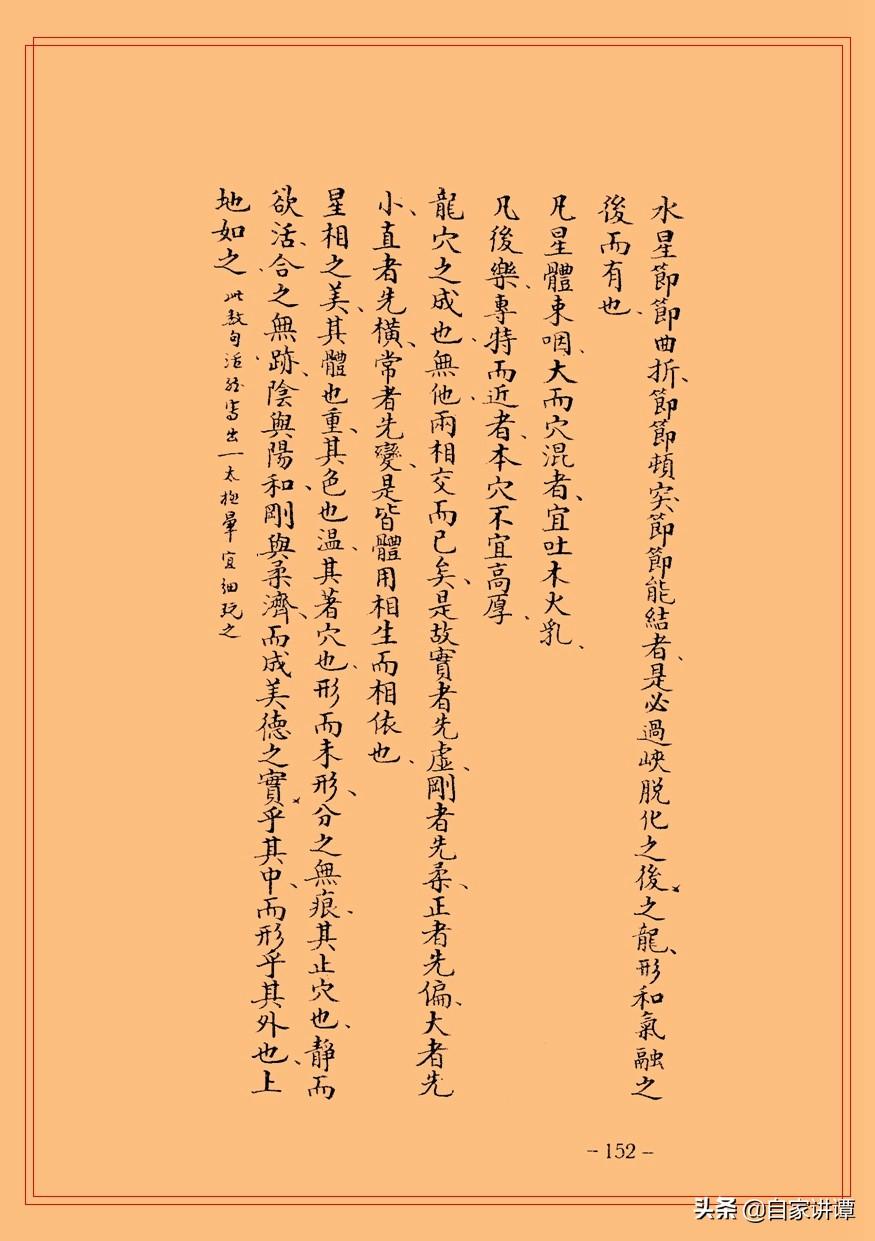 水星節節曲折、節節頓突、節節能結者、是必過峽脱化之後、之龍、形和氣融之
後而有也、
凡星體束咽、大而穴混者、宜吐木火乳、
凡後樂、專特而近者、本穴不宜高厚、
龍穴之成也、無他、兩相交而已矣、是故實者先虛、剛者先柔、正者先偏、大者先
小、直者先橫、常者先變、是皆體用相生而相依也、
星相之美、其體也重、其色也温、其著穴也、形而未形、分之無痕、其止穴也、靜而
欲活、合之無跡、陰與陽和、剛與柔濟、而成美德之實乎其中、而形乎其外也、上
地如之、此數句活繪寫出一太極暈宜細玩之
- 152 -
头条 @自家讲谭